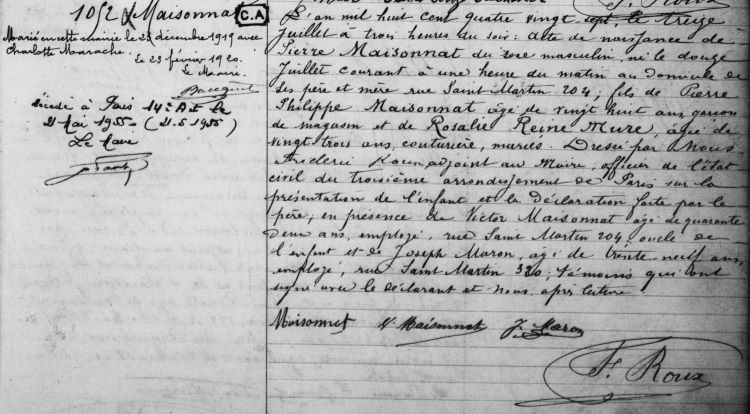 1012 Maisonnat
C.A
Marié en cette mairie le 27 décembre 1919 avec
Charlotte Marache.
Le 23 février 1920.
Le Maire
décédé à Paris 14e Ar le
21 Mai 1955 (21.5.1955)
Le Maire
F. Roux
L'an mil huit cent quatre vingt sept le treize
juillet à trois heures du soir: acte de naissance de
Pierre Maisonnat du sexe masculin, né le douze
Juillet courant à une heure du matin au domicile de
ses père et mère rue Saint Martin 204; fils de Pierre
Philippe Maisonnat âgé de vingt huit ans, garçon
de magasin et de Rosalie Reine Mure, âgée de
vingt trois ans, couturière, mariés. Dressé par Nous
Frédéric Roux, adjoint au Maire, officier de l'état
civil du troisième arrondissement de Paris sur la
présentation de l'enfant et la déclaration faite par le
père, en présence de Victor Maisonnat âgé de quarante
deux ans, employé, rue Saint Martin 204; oncle de
l'enfant et de Joseph Maron, âgé de trente neuf ans,
employé, rue Saint Martin 320: témoins qui ont
signé avec le déclarant et Nous après lecture.
Maisonnat V. Maisonnat J. Maron
F. Roux